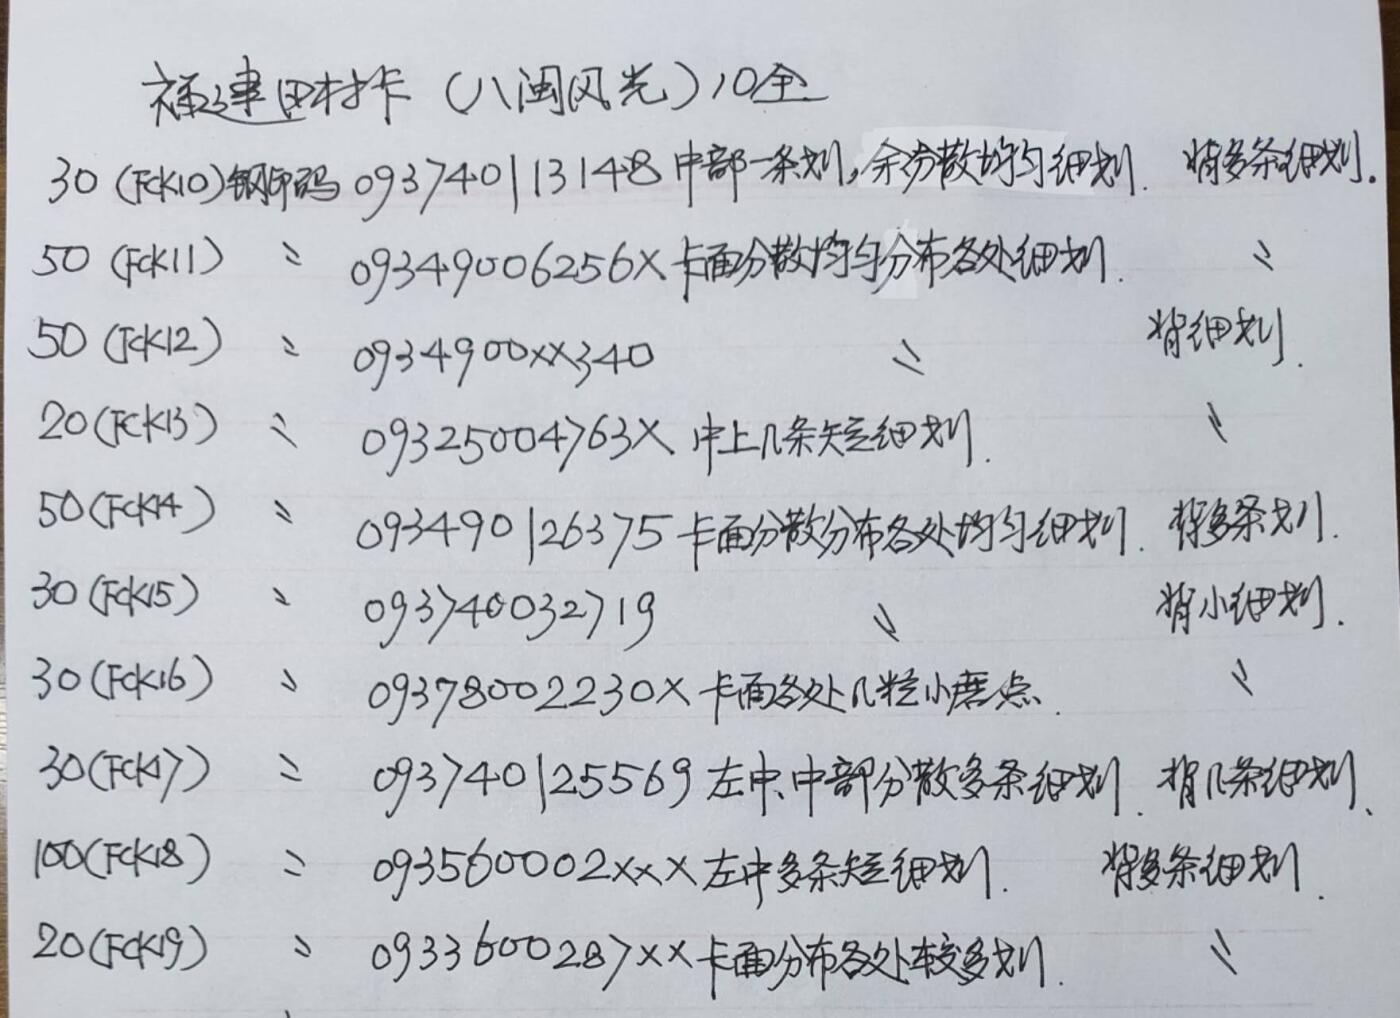 福建田村卡（八闽风光）10全
30（FCK10）钢印码 093740113148 中部一条划，余分散均匀细划． 背多条细划．
50（FCK11） 〃 09349006256X 卡面分散均匀分布各处细划． 〃
50（FCK12） 〃 0934900XX340 〃 背细划．
20（FCK13） 〃 09325004763X 中上几条短细划． 〃
50（FCK14） 〃 093490126375 卡面分散分布各处均匀细划． 背多条划．
30（FCK15） 〃 093740032719 〃 背小细划．
30（FCK16） 〃 09378002230X 卡面各处几粒小磨点． 〃
30（FCK17） 〃 093740125569 左中、中部分散多条细划． 背几条细划、
100（FCK18） 〃 093560002XXX 左中多条短细划． 背多条细划．
20（FCK19） 〃 0933600287XX 卡面分布各处较多划． 〃